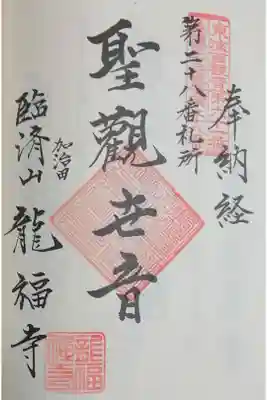 奉納経
第二十八番札所
聖觀世音
加治田
臨済山龍福寺
龍福寺